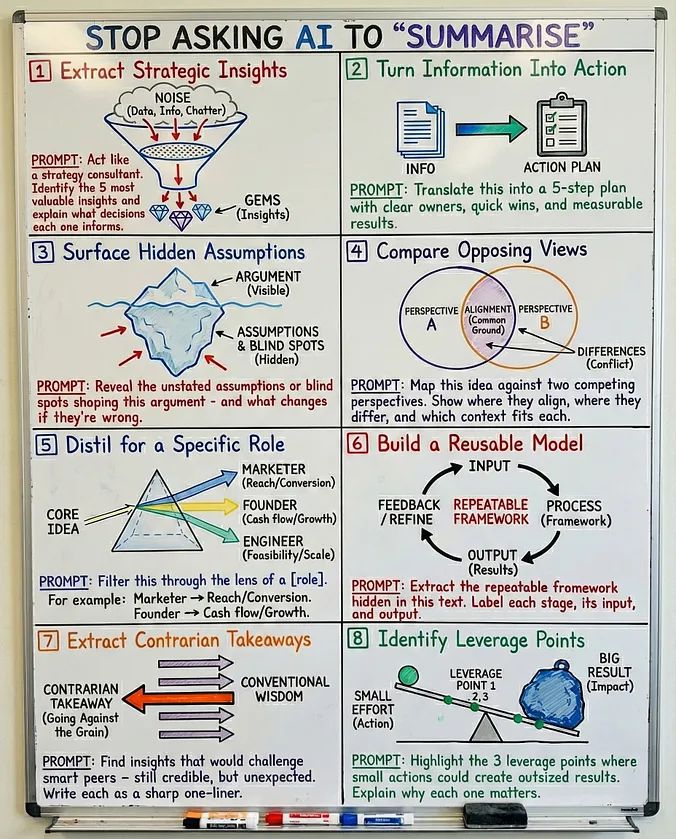 STOP ASKING AI TO “SUMMARISE”
1 Extract Strategic Insights
NOISE
(Data, Info, Chatter)
PROMPT: Act like
a strategy consultant.
Identify the 5 most
valuable insights and
explain what decisions
each one informs.
GEMS
(Insights)
2 Turn Information Into Action
INFO
ACTION PLAN
PROMPT: Translate this into a 5-step plan
with clear owners, quick wins, and measurable
results.
3 Surface Hidden Assumptions
ARGUMENT
(Visible)
ASSUMPTIONS
& BLIND SPOTS
(Hidden)
PROMPT: Reveal the unstated assumptions or blind
spots shoping this argument - and what changes
if they're wrong.
4 Compare Opposing Views
PERSPECTIVE
A
ALIGNMENT
(Common
Ground)
PERSPECTIVE
B
DIFFERENCES
(Conflict)
PROMPT: Map this idea against two competing
perspectives. Show where they align, where they
differ, and which context fits each.
5 Distil for a Specific Role
CORE
IDEA
MARKETER
(Reach/Conversion)
FOUNDER
(Cash flow/Growth)
ENGINEER
(Feasibility/Scale)
PROMPT: Filter this through the lens of a [role].
For example: Marketer → Reach/Conversion.
Founder → Cash flow/Growth.
6 Build a Reusable Model
INPUT
FEEDBACK
/REFINE
REPEATABLE
FRAMEWORK
PROCESS
(Framework)
OUTPUT
(Results)
PROMPT: Extract the repeatable framework
hidden in this text. Label each stage, its input,
and output.
7 Extract Contrarian Takeaways
CONTRARIAN
TAKEAWAY
(Going Against
the Grain)
CONVENTIONAL
WISDOM
PROMPT: Find insights that would challenge
smart peers – still credible, but unexpected.
Write each as a sharp one-liner.
8 Identify Leverage Points
SMALL
EFFORT
(Action)
LEVERAGE
POINT 1
,2,3
BIG
RESULT
(Impact)
PROMPT: Highlight the 3 leverage points where
small actions could create outsized results.
Explain why each one matters.